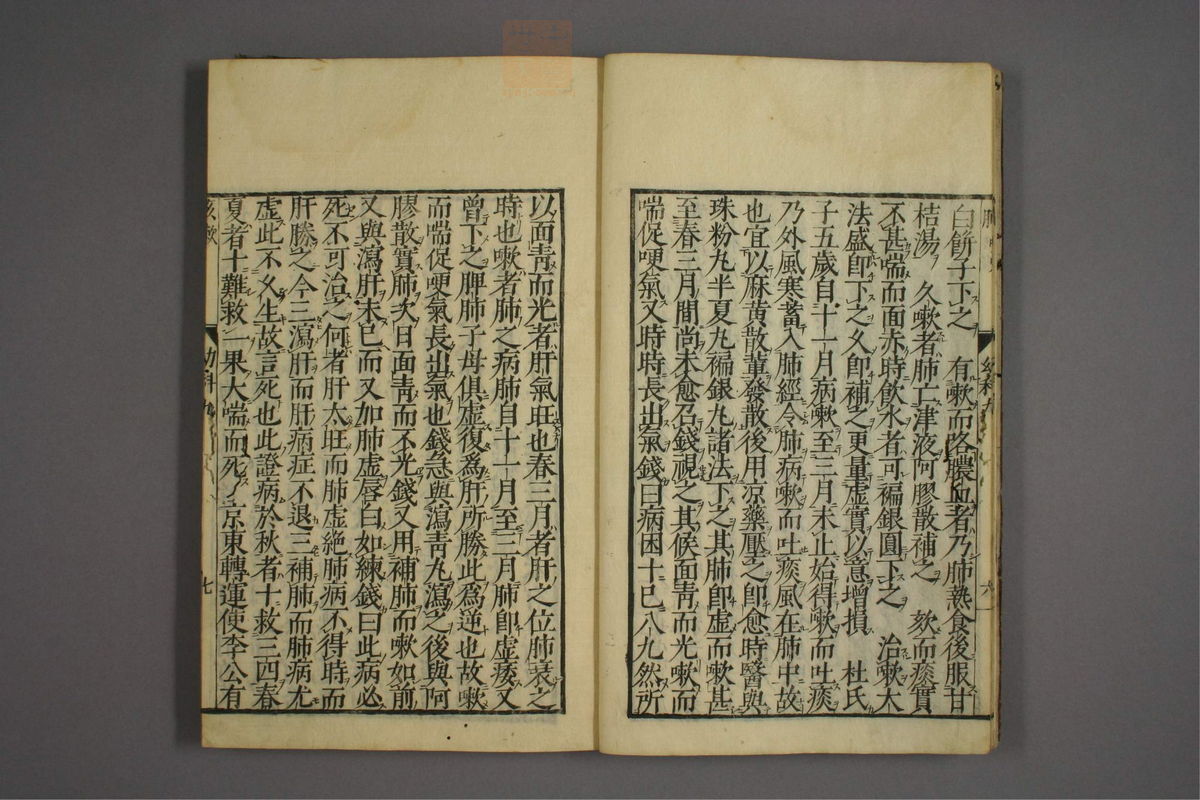 白餠子下之　有嗽而咯膿血者乃肺熱食後服甘
桔湯　久嗽者肺亡津液阿膠散補之　欬而痰實
不甚喘而面赤時飲水者可褊銀圓下之　治嗽大
法盛卽下之久卽補之更量虛實以意增損　杜氏
子五歲自十一月病嗽至三月未止始得嗽而吐痰
乃外風寒蓄入肺經令肺病嗽而吐痰風在肺中故
也宜以麻黃散輩發散後用凉藥壓之卽愈時醫與
珠粉丸半夏丸褊銀丸諸法下之其肺卽虛而嗽甚
至春三月間尚未愈召錢視之其候面靑而光嗽而
喘促哽氣又時時長出氣錢曰病困十已八九然所
以面靑而光者肝氣旺也春三月者肝之位肺衰之
時也嗽者肺之病肺自十一月至三月肺卽虛痿又
曾下之脾肺子母俱虛復爲肝所勝此爲逆也故嗽
而喘促哽氣長出氣也錢急與瀉靑丸瀉之後與阿
膠散實肺次日面靑而不光錢又用補肺而嗽如前
又與瀉肝未已而又加肺虛唇白如練錢曰此病必
死不可治之何者肝太旺而肺虛絕肺病不得時而
肝勝之今三瀉肝而肝病症不退三補肺而肺病尤
虛此不久生故言死也此證病於秋者十救三四春
夏者十難救一果大喘而死　京東轉運使李公有
幼科
六
幼科
七